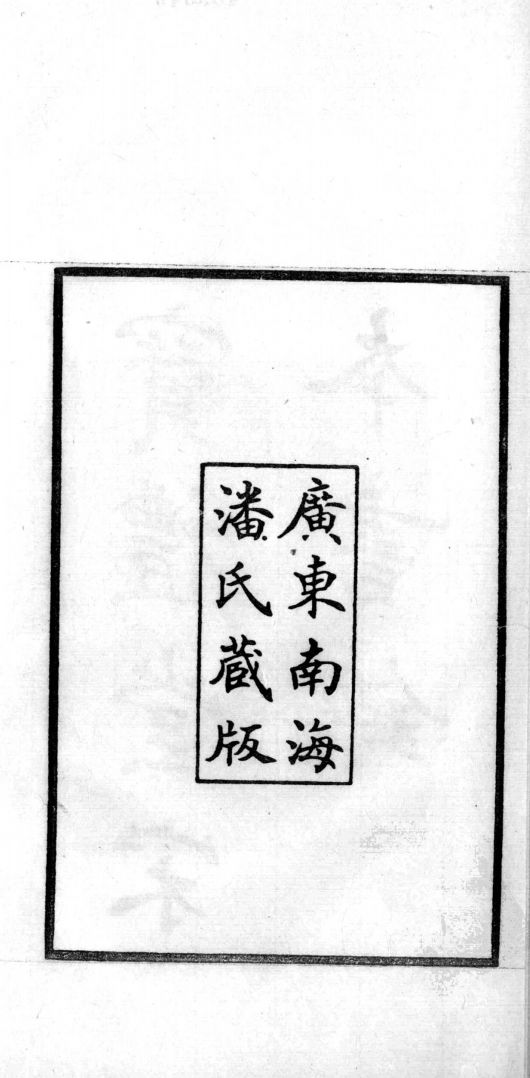 廣東南海
潘氏蔵版